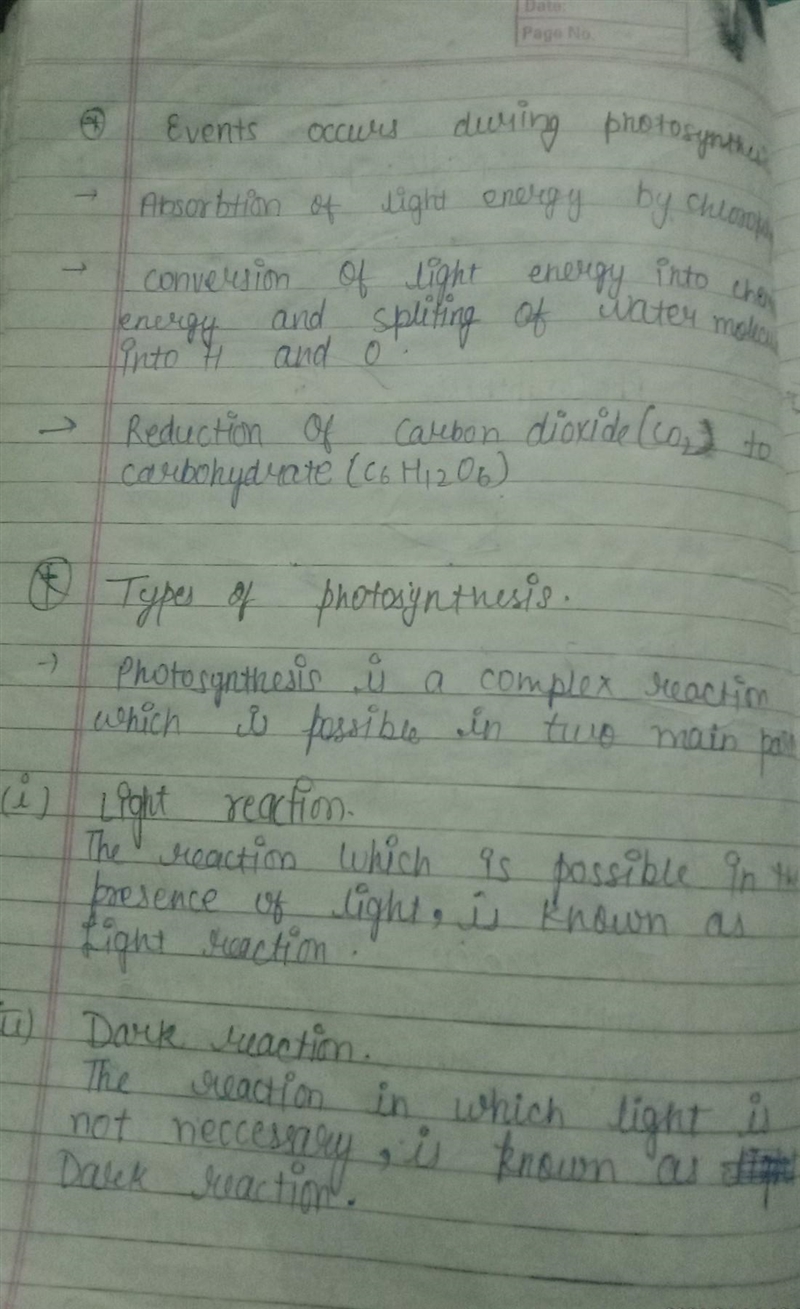 Date:
Page No.
Events occurs during photosynthes
→ Absorbtion of light energy by chlorophy
→ conversion of light energy into chem
energy and spliting of water molecu
into H and O.
→ Reduction of carbon dioxide (CO2) to
carbohydrate (C6H12O6)
Types of photosynthesis.
→ Photosynthesis is a complex reaction
which is possible in two main
(i) Light reaction.
The reaction which is possible in th
presence of light, is known as
Light reaction.
ii) Dark reaction.
The reaction in which light is
not neccessary, is known as
Dark reaction.